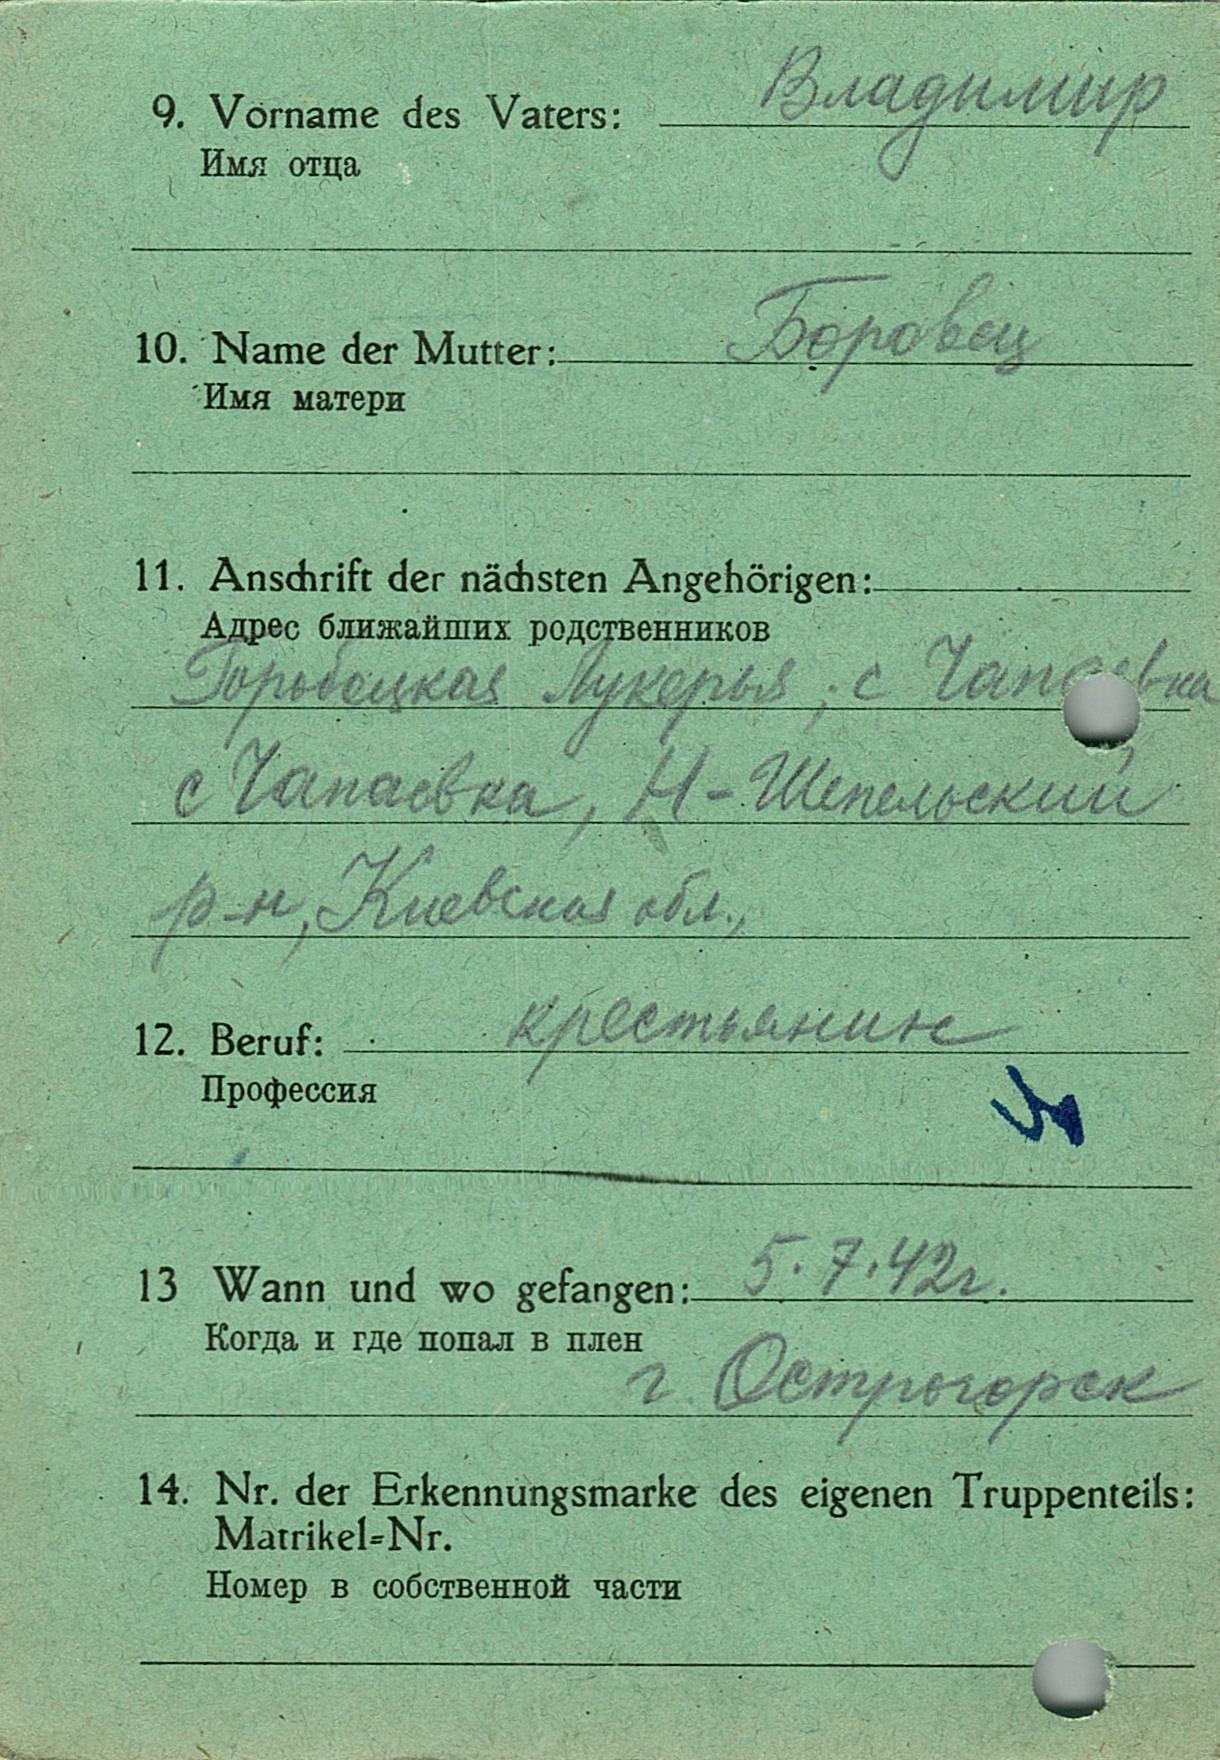 9. Vorname des Vaters: Владимир
Имя отца
10. Name der Mutter: Боровец
Имя матери
11. Anschrift der nächsten Angehörigen:
Адрес ближайших родственников
Горобецкая Лукерья, с Чапаевка
с Чапаевка, Н-Шепельский
р-н, Киевская обл.,
12. Beruf: крестьянин
Профессия
13 Wann und wo gefangen: 5.7.42г.
Когда и где попал в плен
г. Острогорск
14. Nr. der Erkennungsmarke des eigenen Truppenteils:
Matrikel=Nr.
Номер в собственной части